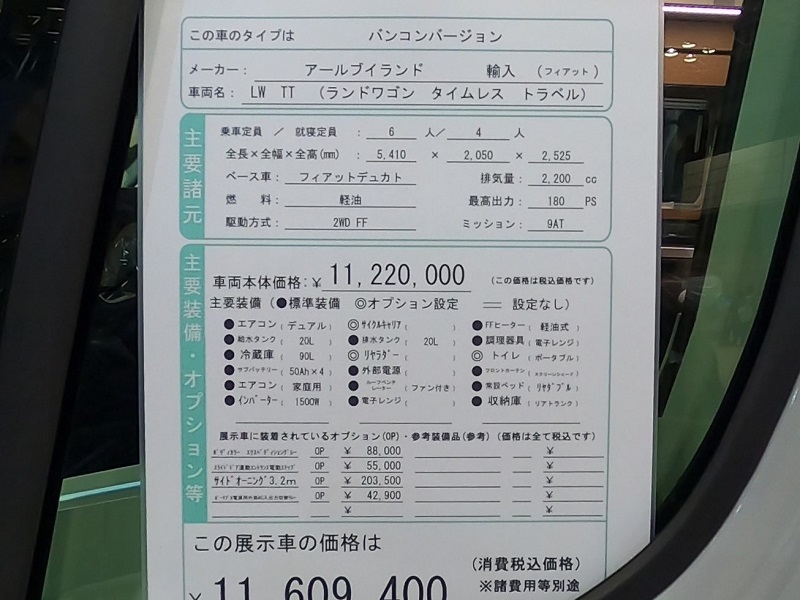 この車のタイプは　バンコンバージョン
メーカー：　アールブイランド　輸入　（フィアット）
車両名：　LW　TT　（ランドワゴン　タイムレス　トラベル）
主要諸元
乗車定員　／　就寝定員　：　6　人／　4　人
全長×全幅×全高(mm)　：　5,410　×　2,050　×　2,525
ベース車：　フィアットデュカト　排気量：　2,200　cc
燃　料：　軽油　最高出力：　180　PS
駆動方式：　2WD FF　ミッション：　9AT
主要装備・オプション等
車両本体価格：¥　11,220,000　（この価格は税込価格です）
主要装備（●標準装備　◎オプション設定　＝　設定なし）
●エアコン（デュアル）　◎サイクルキャリア（　）　●FFヒーター（軽油式）
●給水タンク（20L）　●排水タンク（20L）　●調理器具（電子レンジ）
●冷蔵庫（90L）　◎リヤラダー（　）　◎トイレ（ポータブル）
●サブバッテリー（50Ah×4）　●外部電源（　）　●フロントカーテン（スクリーンシェード）
●エアコン（家庭用）　●ルーフベンチレーター（ファン付き）　●常設ベッド（リヤダブル）
●インバーター（1500W）　●電子レンジ（　）　●収納庫（リアトランク）
展示車に装着されているオプション(OP)・参考装備品(参考)（価格は全て税込です）
OP　¥　88,000　¥　¥
スライドドア連動エントランス電動ステップ　OP　¥　55,000　¥　¥
サイドオーニング3.2m　OP　¥　203,500　¥　¥
OP　¥　42,900　¥　¥
¥　¥
この展示車の価格は
¥11,609,400　（消費税込価格）
※諸費用等別途